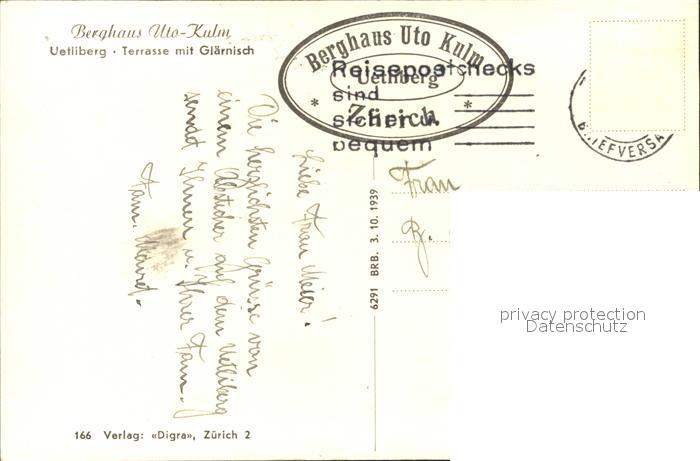 Berghaus Uto-Kulm
Uetliberg · Terrasse mit Glärnisch
Berghaus Uto Kulm
Uetliberg
* Zürich *
Reisepostchecks
sind
sicher u.
bequem
BRIEFVERSA
Liebe Frau Meier!
Die herzlichsten Grüsse von
einem Abstecher auf den Uetliberg
sendet Ihnen u. Ihrer Fam.
Fam.
6291 BRB. 3. 10. 1939
Frau
privacy protection
Datenschutz
166 Verlag: «Digra», Zürich 2